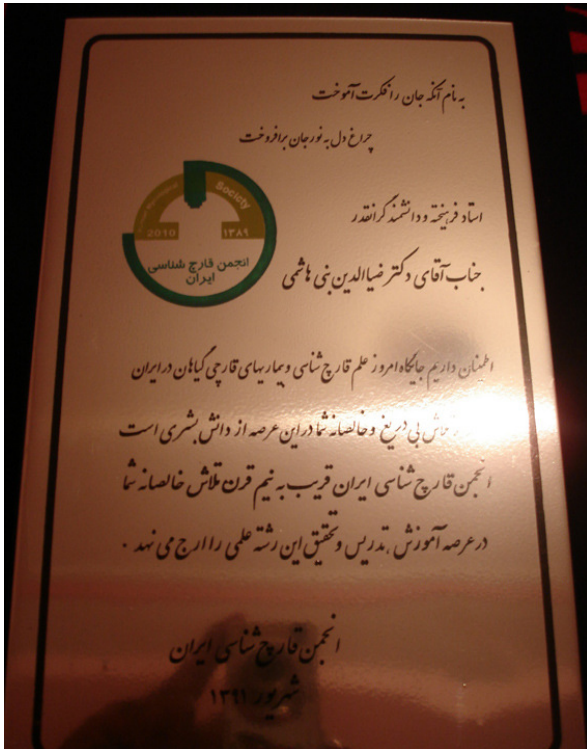 به نام آنکه جان را فکرت آموخت
چراغ دل به نور جان برافروخت
Society
2010
۱۳۸۹
انجمن قارچ شناسی
ایران
استاد فرهیخته و دانشمند گرانقدر
جناب آقای دکتر ضیاالدین بنی هاشمی
اطمینان داریم جایگاه امروز علم قارچ شناسی و بیماریهای قارچی گیاهان در ایران
تلاش بی دریغ و خالصانه شما در این عرصه از دانش بشری است
انجمن قارچ شناسی ایران قریب به نیم قرن تلاش خالصانه شما
در عرصه آموزش ، تدریس و تحقیق این رشته علمی را ارج می نهد .
انجمن قارچ شناسی ایران
شهریور ۱۳۹۱